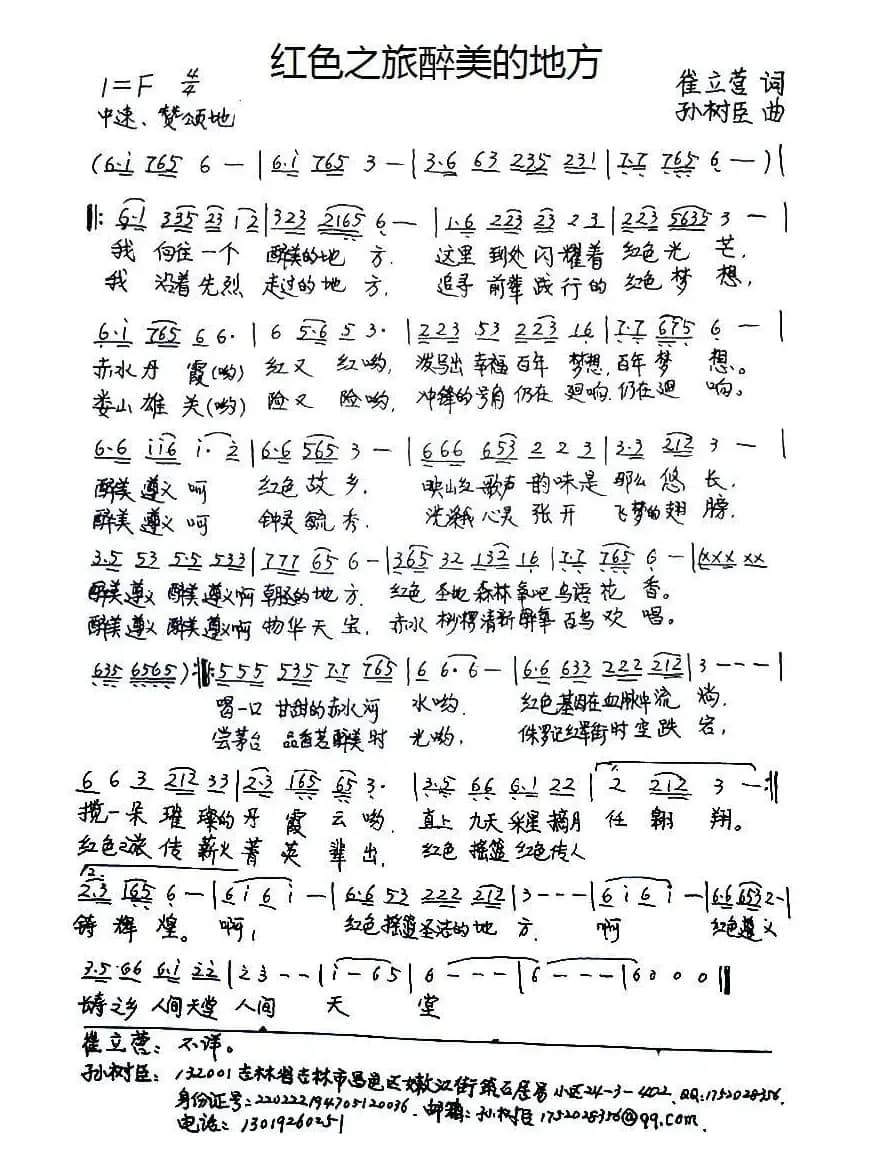 红色之旅醉美的地方
1=F 4/4
崔立营 词
中速、赞颂地
孙树臣 曲
(6·i 765 6 — | 6·i 765 3 — | 3·6 63 235 231 | 7·7 765 6 — ) |
‖: 6·1 335 23 12 | 323 2165 6 — | 1·6 223 23 23 | 223 5635 3 — |
我 向往一个 醉美的地 方. 这里 到处闪耀着 红色光 芒.
我 沿着先烈 走过的地 方. 追寻 前辈践行的 红色梦 想,
6·i 765 6 6· | 6 5·6 5 3· | 223 53 223 16 | 7·7 675 6 — |
赤水丹 霞(哟) 红又 红哟, 泼写出 幸福百年 梦想,百年梦 想。
娄山雄 关(哟) 险又 险哟, 冲锋的号角仍在 廻响.仍在廻 响。
6·6 ii6 i·2 | 6·6 565 3 — | 666 653 2 2 3 | 3·3 212 3 — |
醉美遵义呵 红色故 乡. 映山红歌声 韵味是 那么悠 长,
醉美遵义呵 钟灵毓 秀. 洗涤我心灵 张开 飞梦的翅 膀.
3·5 53 5·5 533 | 777 65 6 — | 365 32 132 16 | 7·7 765 6 — | (xxx xx
醉美遵义 醉美遵义啊 朝圣的地 方. 红色 圣地森林氧吧鸟语花 香。
醉美遵义 醉美遵义啊 物华天 宝, 赤水 桫椤清新醉氧 百鸟欢 唱。
635 6565) :‖: 555 535 7·7 765 | 6 6· 6 — | 6·6 633 222 212 | 3 - - - |
喝一口 甘甜的赤水河 水哟. 红色基因在血脉中流 淌,
尝茅台 品香茗醉美时 光哟, 侏罗记红军街时空跌 宕,
6 6 3 212 33 | 2·3 165 65 3· | 3·5 66 6·1 22 | 2 212 3 — :‖
揽一朵 璀 璨的丹 霞 云 哟. 直上 九天采星摘月 任 翱 翔。
红色之旅 传 薪火菁 英 辈 出, 红色 摇篮红色传人
2.
2·3 165 6 — | 6 i 6 i — | 6·6 53 222 212 | 3 - - - | 6 i 6 i — | 6·6 653 2 - |
铸 辉 煌。 啊, 红色摇篮圣洁的地 方. 啊 红色遵义
3·5 66 6·i 22 | 2 3 - - | i - 6 5 | 6 - - - | 6 - - - | 6 0 0 0 ‖
之乡 人间天堂 人间 天 堂
崔立营: 不详。
孙树臣: 132001 吉林省吉林市昌邑区嫩江街 居易小区24-3-402. QQ:1752028356.
身份证号:220222194705120036. 邮箱:孙树臣1752028356@qq.com.
电话: 13019260251